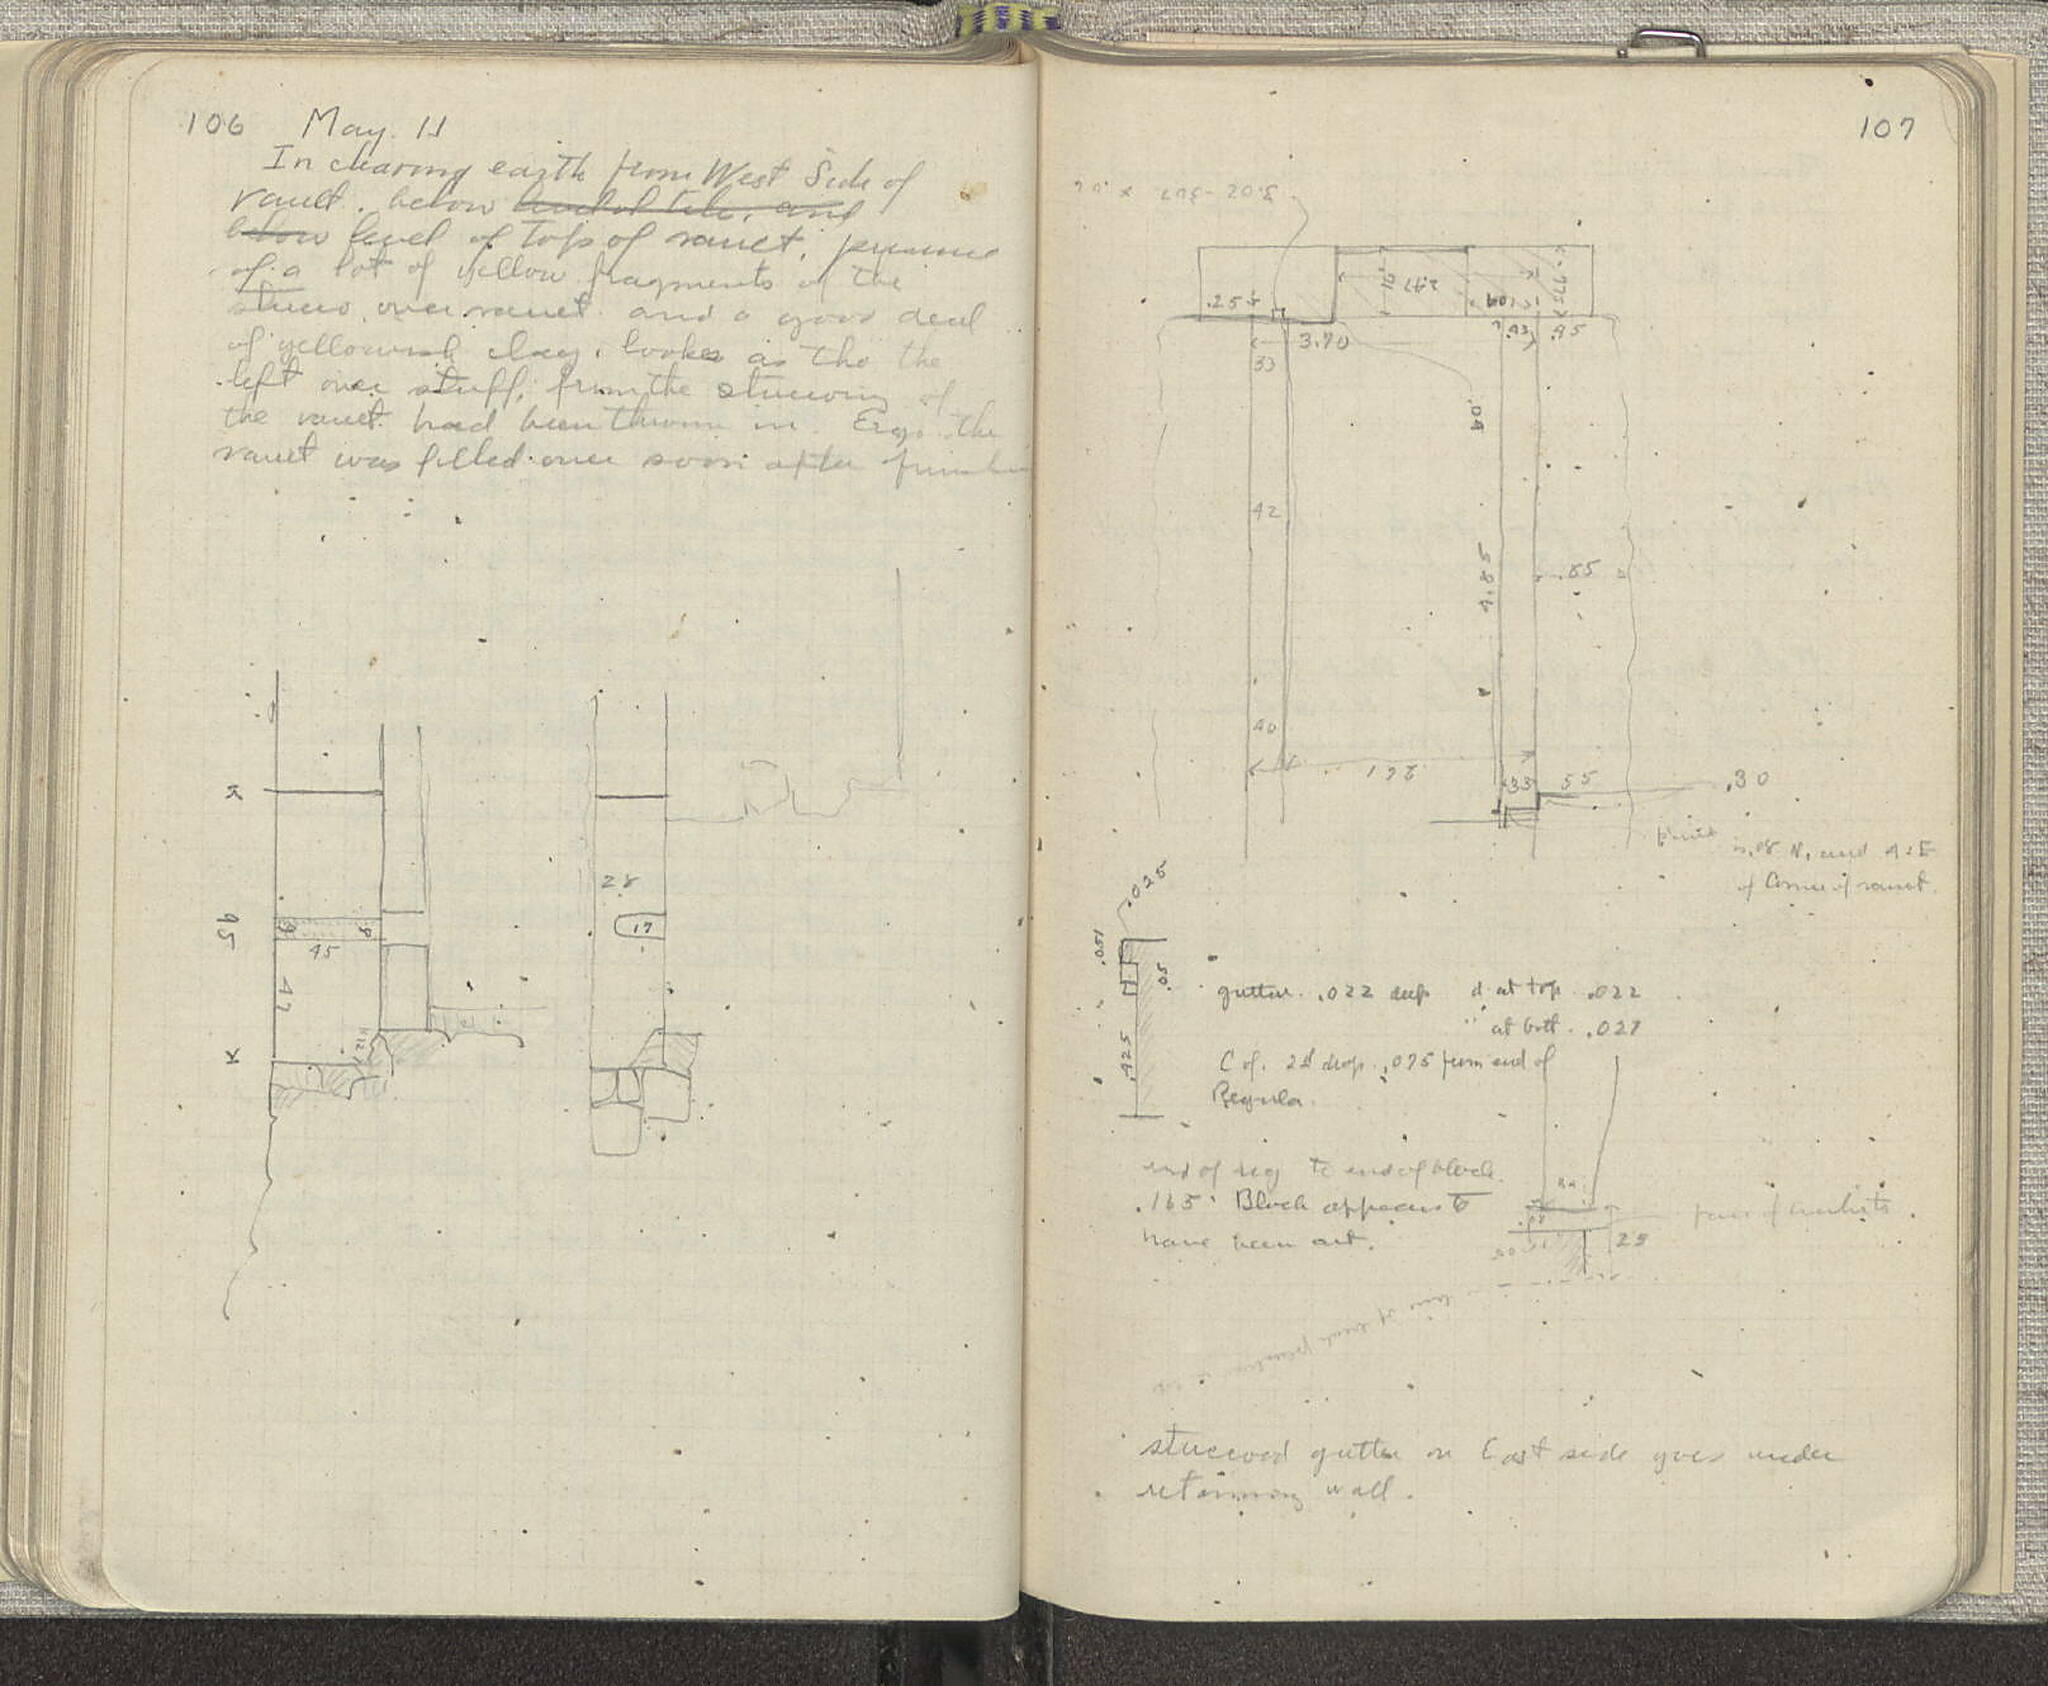 106 May. 11
In clearing earth from West Side of
vault. below level of tile, and
below level of top of vault, presence
of a lot of yellow fragments of the
stucco over vault and a good deal
of yellowish clay. looks as tho the
left over stuff, from the stuccoing of
the vault had been thrown in. Ergo the
vault was filled over soon after
K
95
45
47
K
12
28
17
107
3.02 - 307 x
.25
2.47
.975
3.70
.43
.95
33
.04
42
4.85
.85
40
198
.33
55
.30
is .08 N. and
of Corner of vault.
.025
.051
.05
.425
gutter. .022 deep d. at top .022
" at bott. .027
C of. 2d drop .075 from end of
Regula.
end of reg to end of block.
.165 Block appears to
have been cut.
face of
25
stuccoed gutter on East side goes under
retaining wall.